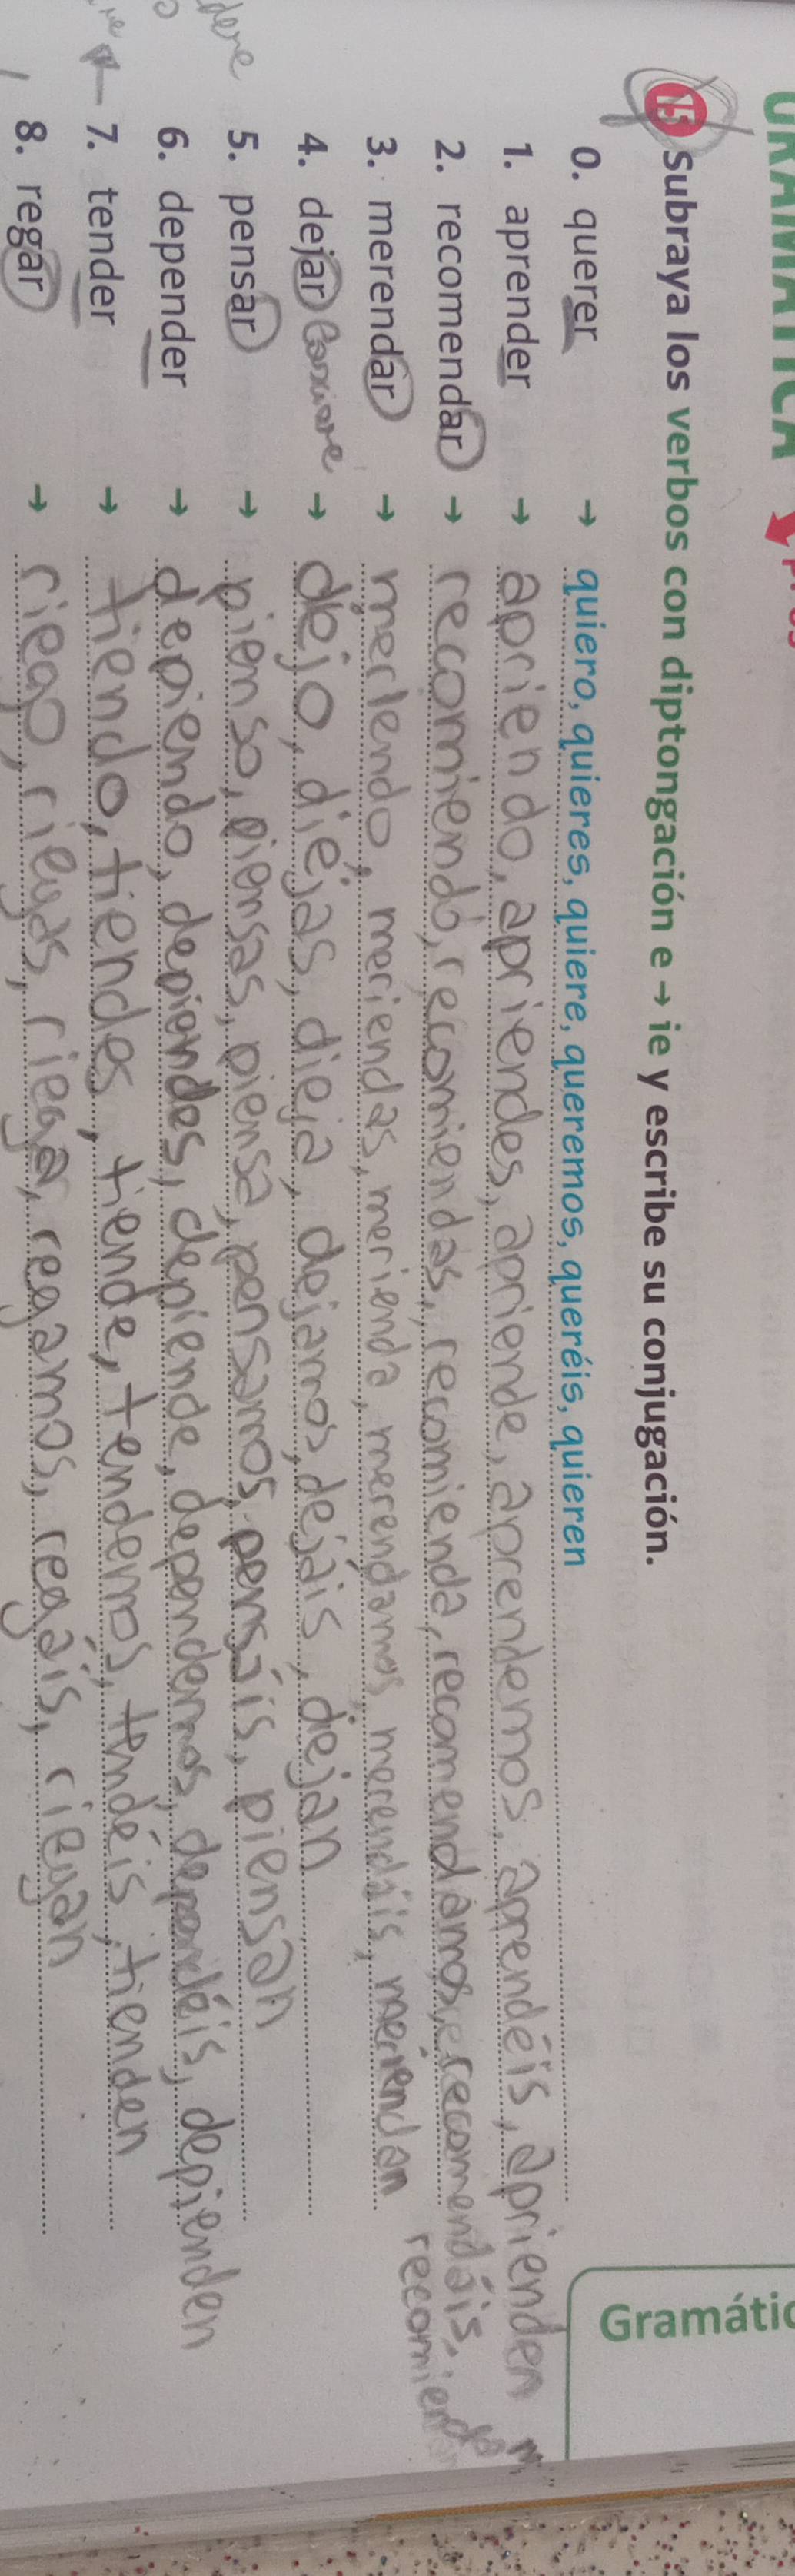 Gramátic
15 Subraya los verbos con diptongación e → ie y escribe su conjugación.
0. querer → quiero, quieres, quiere, queremos, queréis, quieren
1. aprender → apriendo, apriendes, apriende, aprendemos, aprendéis, aprienden
2. recomendar → recomiendo, recomiendas, recomienda, recomendamos, recomendáis,
3. merendar → meriendo, meriendas, merienda, merendamos, merendáis, meriendan
4. dejar lasciare → dejo, diejas, dieja, dejamos, dejáis, diejan
5. pensar → pienso, piensas, piensa, pensamos, pensáis, piensan
6. depender → depiendo, depiendes, depiende, dependemos, dependéis, depienden
7. tender → tiendo, tiendes, tiende, tendemos, tendéis, tienden
8. regar → riego, riegas, riega, regamos, regáis, riegan